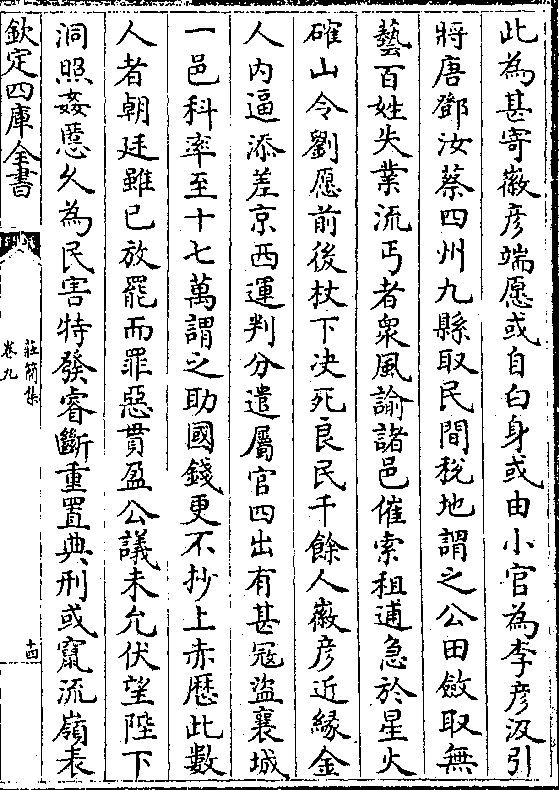 此為甚寄徽彦端愿或自白身或由小官為李彦汲引
將唐鄧汝蔡四州九縣取民間税地謂之公田斂取無
藝百姓失業流丐者衆風諭諸邑催索租逋急於星火
確山令劉愿前後杖下决死良民千餘人徽彦近緣金
人内逼添差京西運判分遣屬官四出有甚冦盜襄城
一邑科率至十七萬謂之助國錢更不抄上赤厯此數
人者朝廷雖已放罷而罪惡貫盈公議未允伏望陛下
洞照姦慝久為民害特發睿斷重置典刑或竄流嶺表
欽定四庫全書
莊簡集
卷九
十四